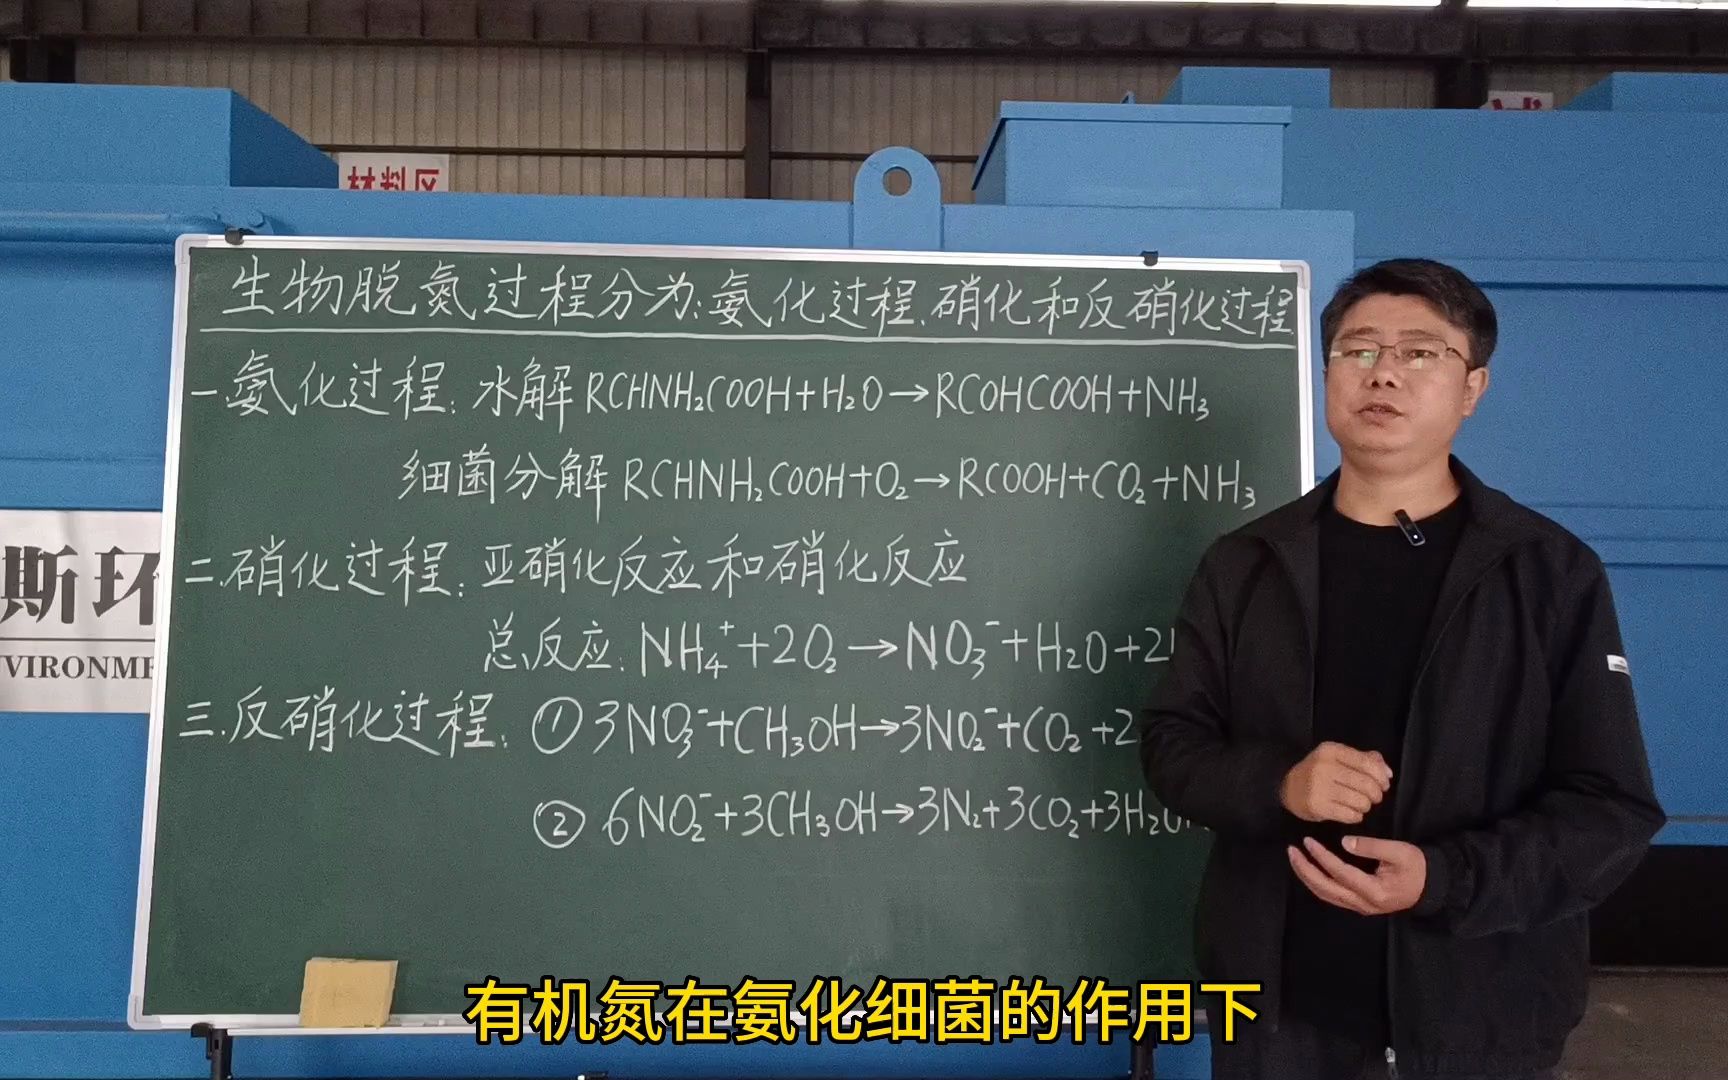 材料区
生物脱氮过程分为:氨化过程、硝化和反硝化过程
一.氨化过程:水解 RCHNH₂COOH+H₂O→RCOHCOOH+NH₃
细菌分解 RCHNH₂COOH+O₂→RCOOH+CO₂+NH₃
二.硝化过程:亚硝化反应和硝化反应
总反应:NH₄⁺+2O₂→NO₃⁻+H₂O+2
三.反硝化过程:①3NO₃⁻+CH₃OH→3NO₂⁻+CO₂+2
②6NO₂⁻+3CH₃OH→3N₂+3CO₂+3H₂O
斯环
VIRONME
有机氮在氨化细菌的作用下